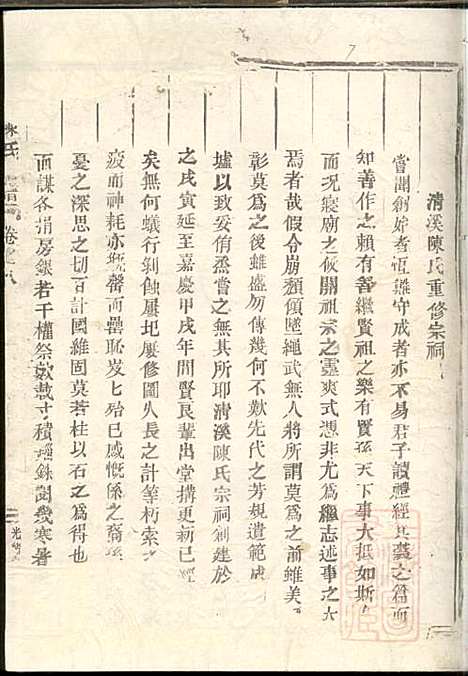 清溪陳氏重修宗祠
嘗聞創始者恆難守成者亦不易君子讀禮經其義之篇而
知善作之賴有善繼賢祖之樂有賢孫天下事大抵如斯
而況寢廟之攸關祖宗之靈爽式憑非尤為繼志述事之大
焉者哉假令崩頹傾墜繩武無人將所謂莫為之前雖美
彰莫為之後雖盛勿傳幾何不歎先代之芳規遺範成
墟以致妥侑烝嘗之無其所耶清溪陳氏宗祠創建於
之戌寅延至嘉慶甲戌年間賢良輩出堂搆更新已
矣無何蟻行剝蝕屢圯屢修圖久長之計等朽索
疲而神耗亦瓶罄而罍恥爰七
已感慨係之裔孫
憂之深思之切百計圖維固莫若柱以石之為得也
而謀各捐房銀若干權祭款裁寸積
銖閱幾寒暑
氏
卷之八
光緒